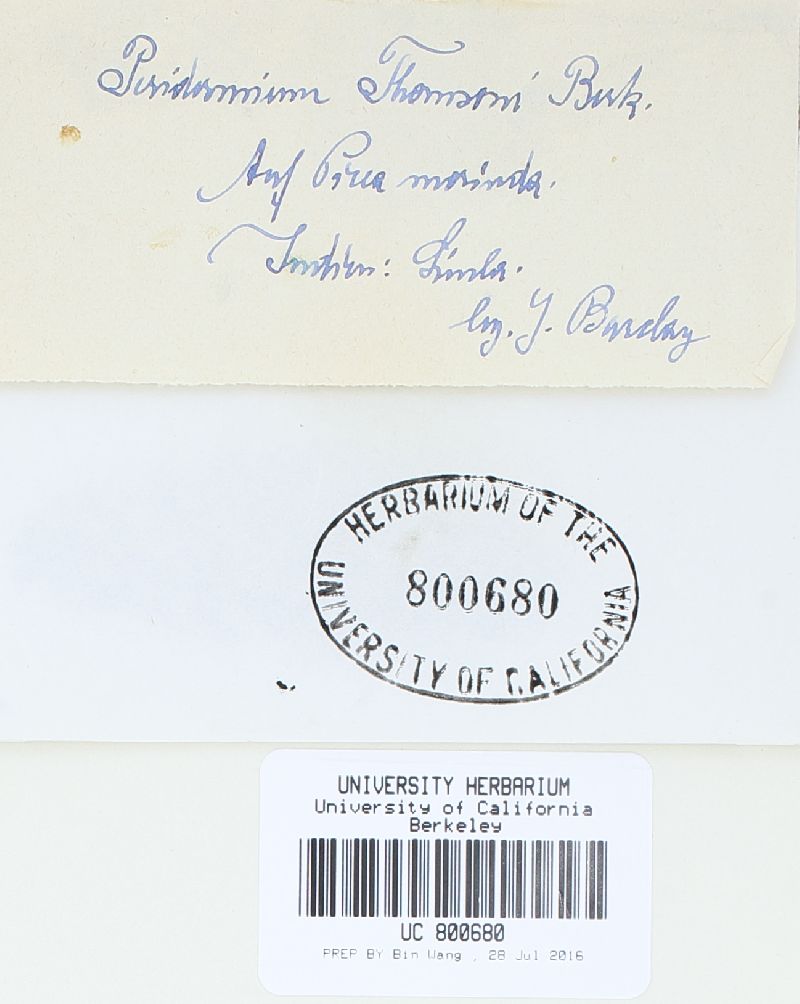 Peridermium Thomsoni Berk.
Auf Picea morinda.
Indien: Simla.
leg. J. Barclay
HERBARIUM OF THE
800680
UNIVERSITY OF CALIFORNIA
UNIVERSITY HERBARIUM
University of California
Berkeley
UC 800680
PREP BY Bin Wang , 28 Jul 2016